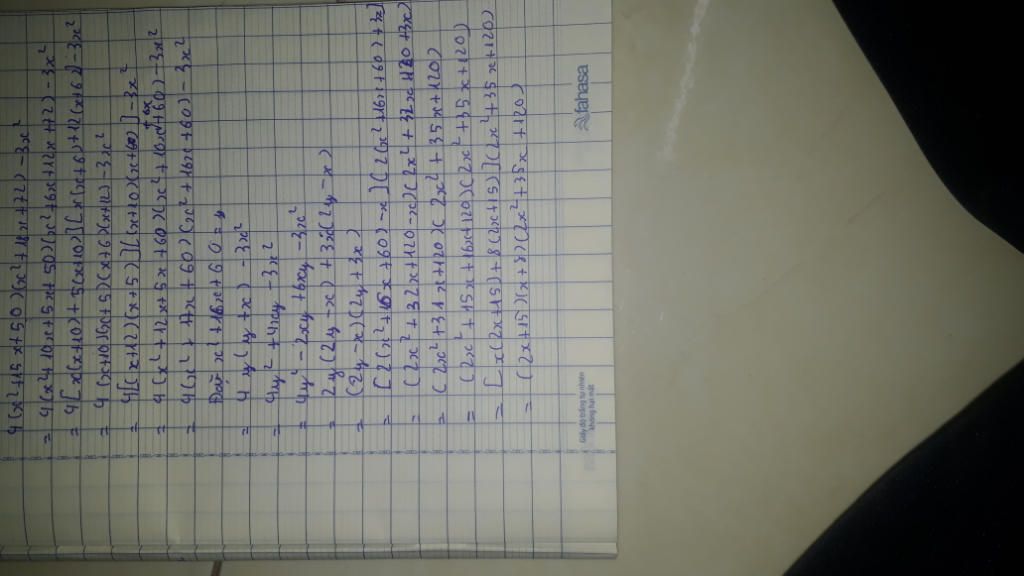 4(x²+15x+50)(x²+18x+72)-3x²
= 4(x²+10x+5x+50)(x²+6x+12x+72)-3x²
= 4[x(x+10)+5(x+10)][x(x+6)+12(x+6)]-3x²
= 4(x+10)(x+5)(x+6)(x+12)-3x²
= 4[(x+12)(x+5)][(x+10)(x+6)]-3x²
= 4(x²+12x+5x+60)(x²+10x+6x+60)-3x²
= 4(x²+17x+60)(x²+16x+60)-3x²
Đặt x²+16x+60=y
= 4y(y+x)-3x²
= 4y²+4xy-3x²
= 4y²-2xy+6xy-3x²
= 2y(2y-x)+3x(2y-x)
= (2y-x)(2y+3x)
= [2(x²+16x+60)-x][2(x²+16x+60)+3x]
= (2x²+32x+120-x)(2x²+32x+120+3x)
= (2x²+31x+120)(2x²+35x+120)
= (2x²+15x+16x+120)(2x²+35x+120)
= [x(2x+15)+8(2x+15)](2x²+35x+120)
= (2x+15)(x+8)(2x²+35x+120)
Giấy độ trắng tự nhiên
không hại mắt
fahasa